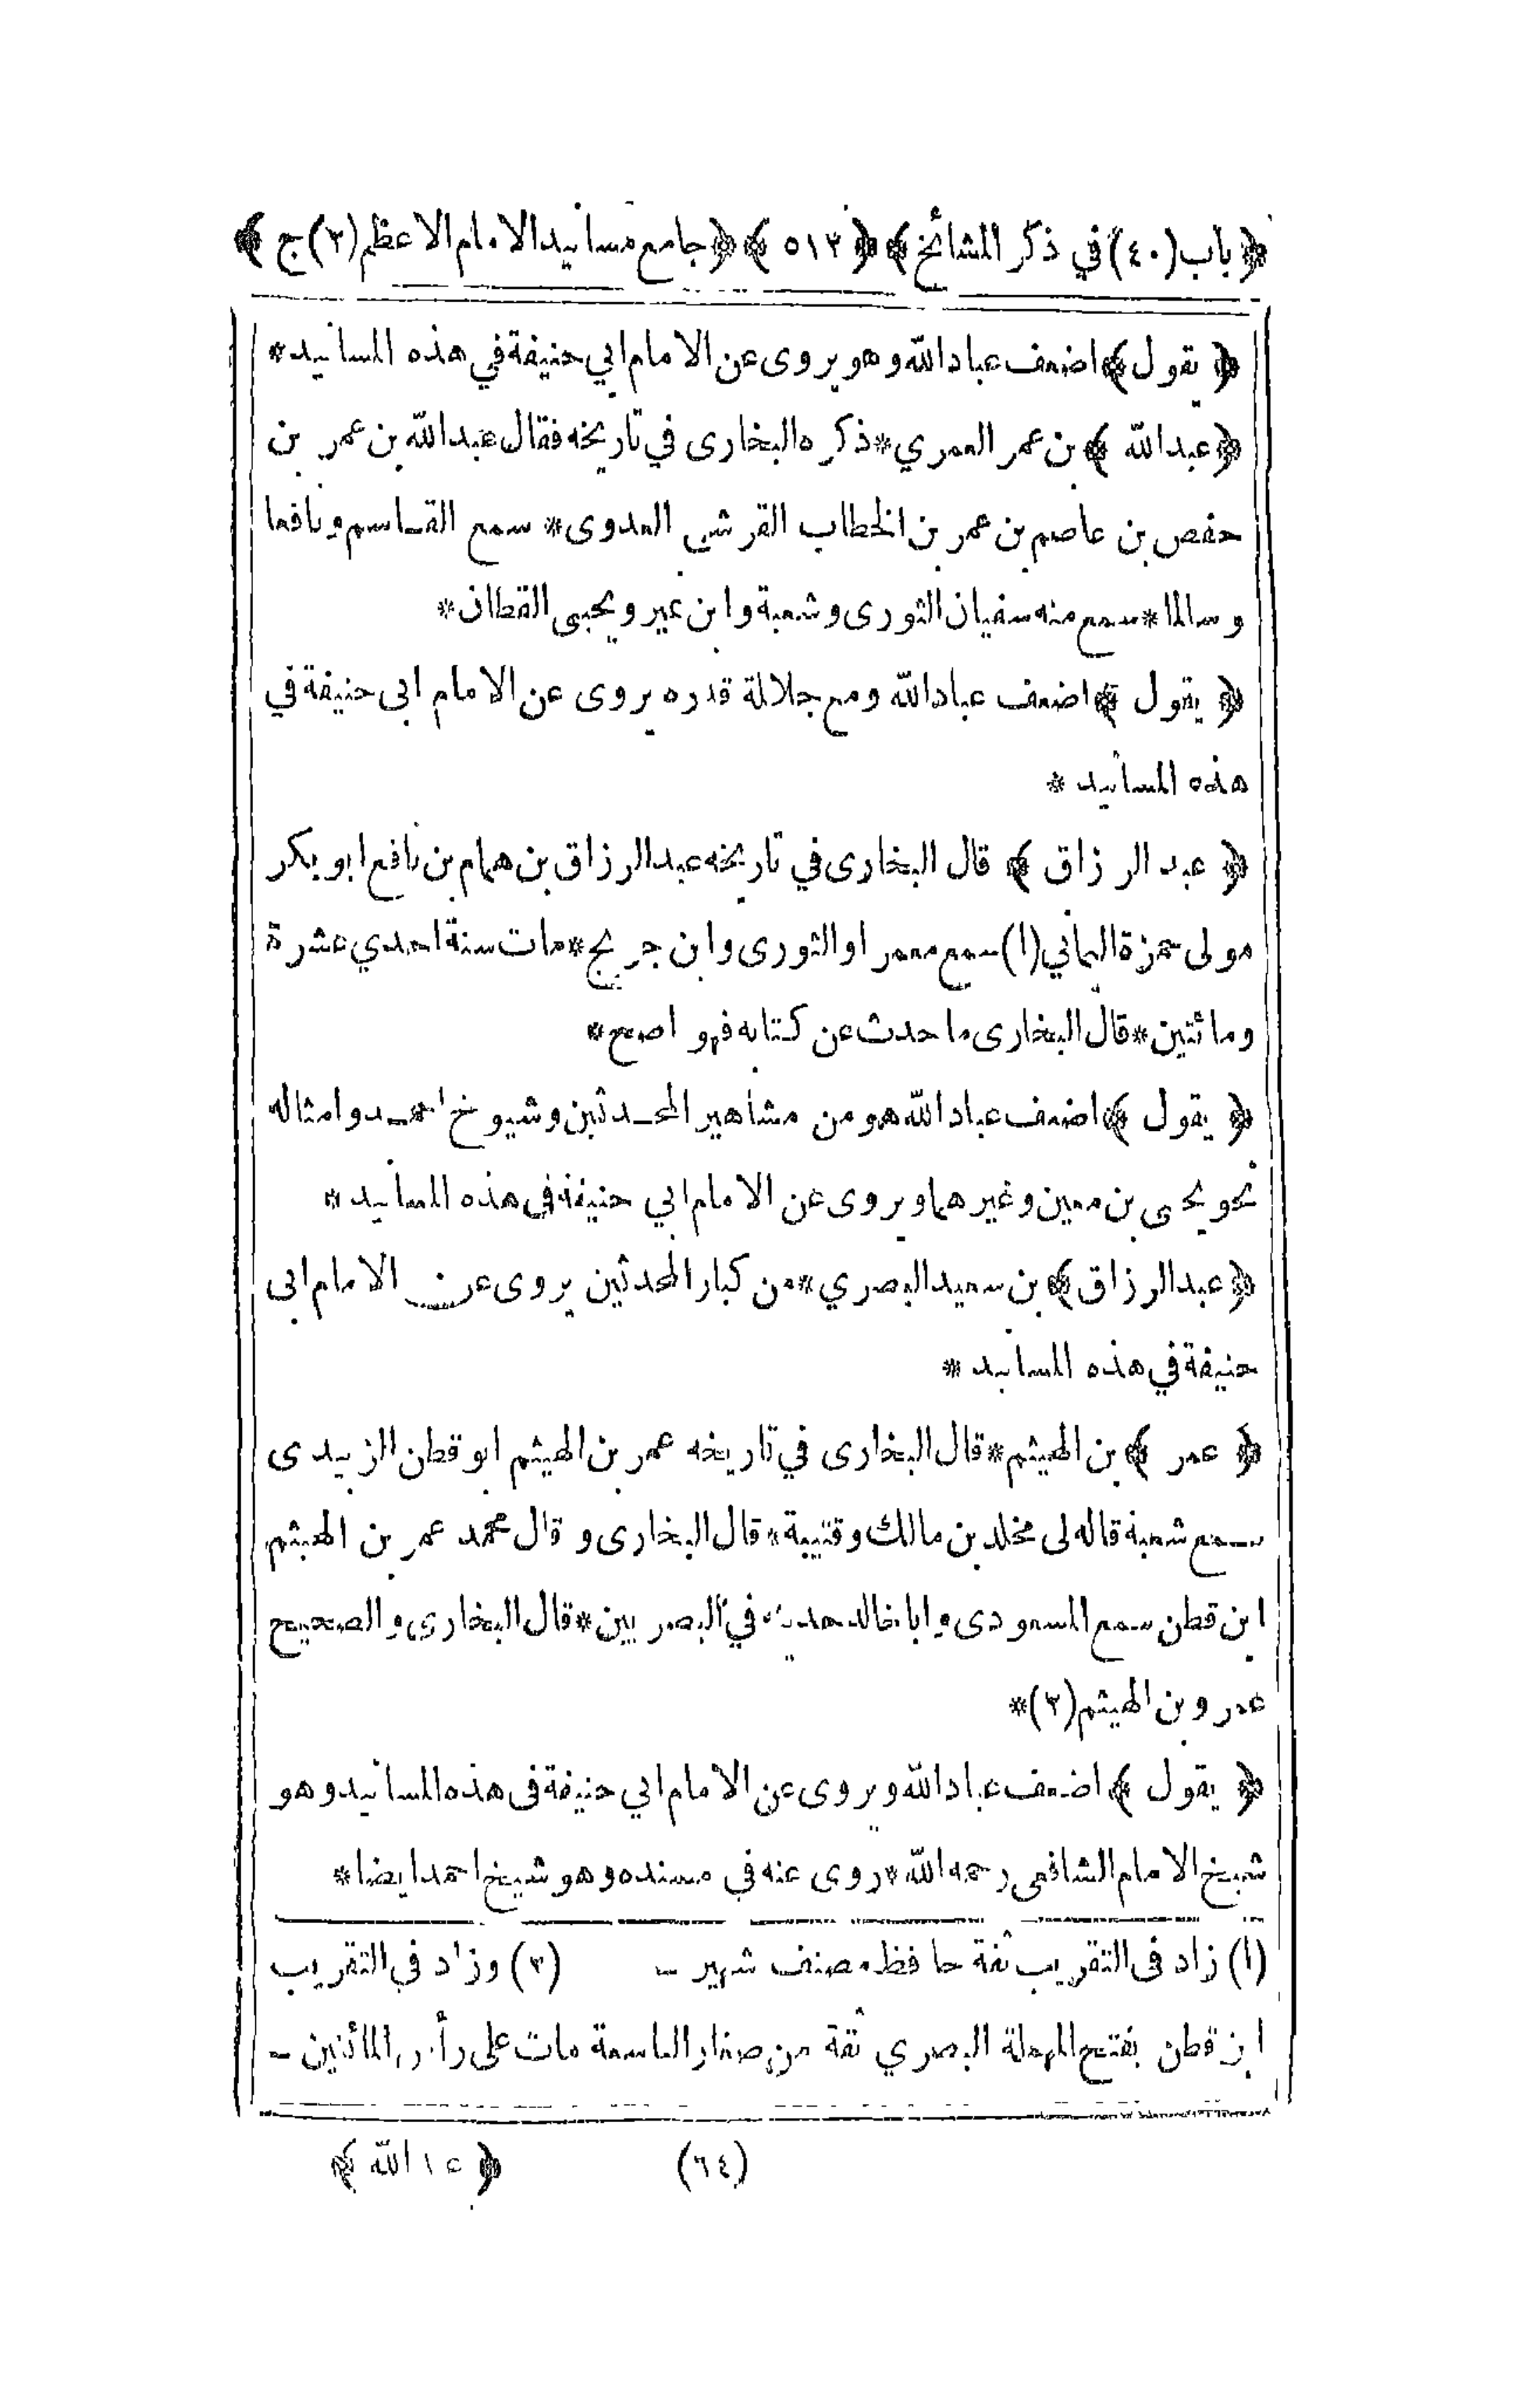 ﴿باب(٤٠)في ذكر المشائخ﴾ ﴿٥١٣﴾ ﴿جامع مسانيد الامام الاعظم(٢)ج﴾
﴿ يقول ﴾ اضعف عباد الله وهو يروى عن الامام ابي حنيفة في هذه المسانيد*
﴿عبد الله ﴾ بن عمر العمري*ذكره البخارى في تاريخه فقال عبد الله بن عمر بن
حفص بن عاصم بن عمر بن الخطاب القرشي العدوى* سمع القاسم ونافعا
وسالما*سمع منه سفيان الثورى وشعبة وابن نمير ويحيى القطان*
﴿ يقول ﴾ اضعف عباد الله ومع جلالة قدره يروى عن الامام ابى حنيفة في
هذه المسانيد *
﴿ عبد الرزاق ﴾ قال البخارى في تاريخه عبد الرزاق بن همام بن نافع ابو بكر
مولى حمزة اليماني(١)سمع معمرا والثورى وابن جريج*مات سنة احدي عشرة
ومائتين*قال البخارى ما حدث عن كتابه فهو اصح*
﴿ يقول ﴾ اضعف عباد الله هو من مشاهير المحدثين وشيوخ احمد وامثاله
نحو يحى بن معين وغيرهما ويروى عن الامام ابي حنيفة في هذه المسانيد*
﴿عبد الرزاق﴾ بن سعيد البصري*من كبار المحدثين يروى عن الامام ابى
حنيفة في هذه المسانيد *
﴿ عمر ﴾ بن الهيثم*قال البخارى في تاريخه عمر بن الهيثم ابو قطن الزبيدى
سمع شعبة قاله لى مخلد بن مالك وقتيبة*قال البخارى و قال محمد عمر بن الهيثم
ابن قطن سمع المسعودى و ابا خالد حديثه في البصريين*قال البخارى والصحيح
عمرو بن الهيثم(٢)*
﴿ يقول ﴾ اضعف عباد الله ويروى عن الامام ابي حنيفة فى هذه المسانيد وهو
شيخ الامام الشافعى رحمه الله*روى عنه في مسنده وهو شيخ احمد ايضا*
(١) زاد فى التقريب ثقة حافظ مصنف شهير - (٢) وزاد في التقريب
ابن قطن بفتح المهملة البصري ثقة من صغار التاسعة مات على رأس المائتين -
(٦٤) ﴿ الله ﴾